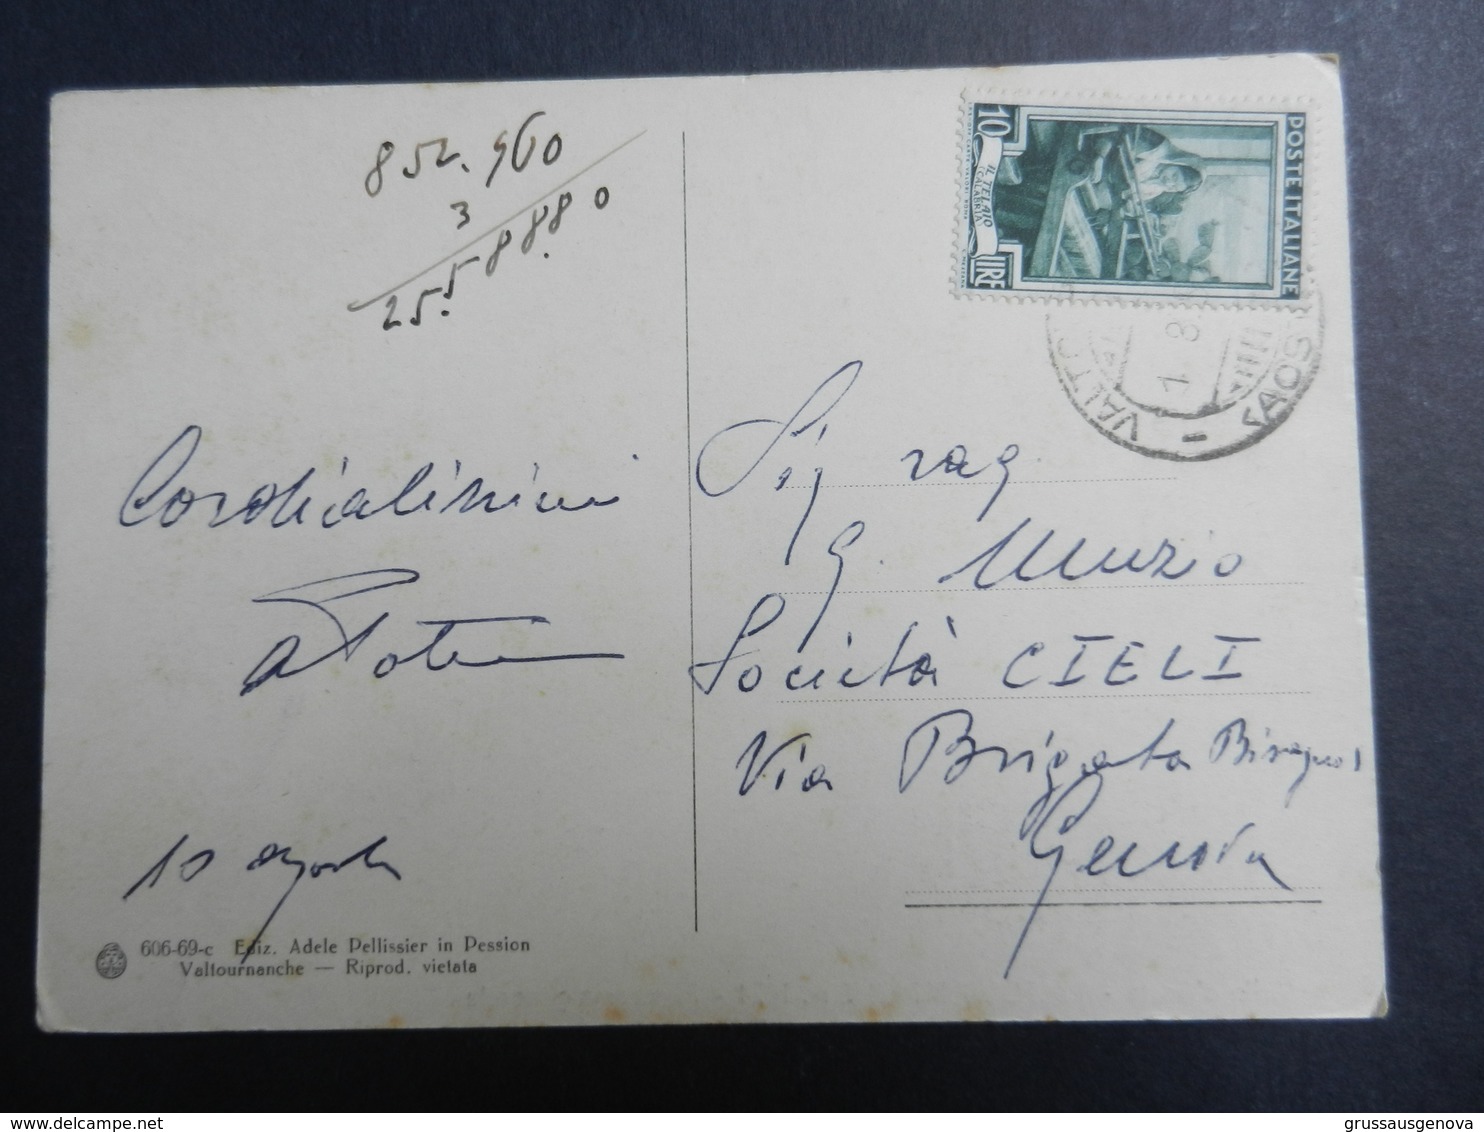 852.960
3
2555.8880
Cordialissimi
10 agosto
606-69-c Ediz. Adele Pellissier in Pession
Valtournanche — Riprod. vietata
POSTE ITALIANE
10
LIRE
IL TELAIO
(CALABRIA)
VALTO
- (AOS
1 8
Sig rag
G. Muzio
Società CIELI
Via Brigata Bisagno 1
Genova
grussausgenova